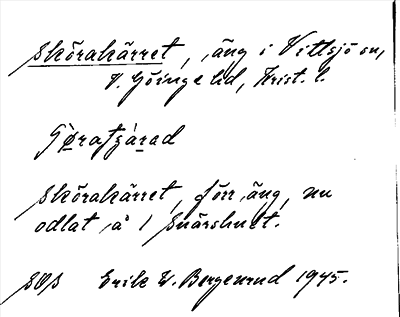 Skörakärret, äng i Vittsjö sn,
V. Göinge hd, Krist. l.
Skörakärret, förr äng, nu
odlat å 1 Snärshult.
SOS Erik W. Bergenrud 1945.